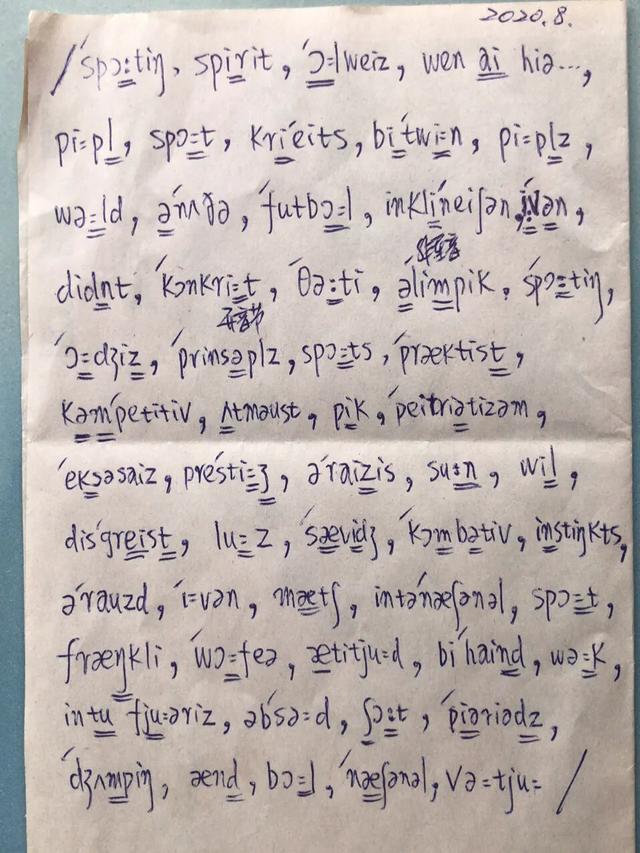 2020.8.
/ˈspɔːtiŋ, spirit, ˈɔːlweiz, wen ai hiə…,
piːpl, spɔːt, kriˈeits, biˈtwiːn, piːplz,
wəːld, əˈnʌðə, ˈfutbɔːl, inkliˈneiʃən, ivən,
didnt, ˈkɔnkriːt, ˈθəːti, əˈlimpik, ˈspɔːtiŋ,
ˈɔːdʒiz, ˈprinsəplz, spɔːts, ˈpræktist,
kəmˈpetitiv, ʌtməust, pik, ˈpeitriətizəm,
ˈeksəsaiz, presˈtiːʒ, əˈraizis, suːn, wil,
disˈgreist, luːz, ˈsævidʒ, ˈkɔmbətiv, instiŋkts,
əˈrauzd, ˈiːvən, mætʃ, intəˈnæʃənəl, spɔːt,
fræŋkli, ˈwɔːfeə, ætitjuːd, biˈhaind, wəːk,
intu fjuːəriz, əbsəːd, ʃɔːt, ˈpiəriədz,
ˈdʒʌmpiŋ, ænd, bɔːl, ˈnæʃənəl, vəːtjuː/